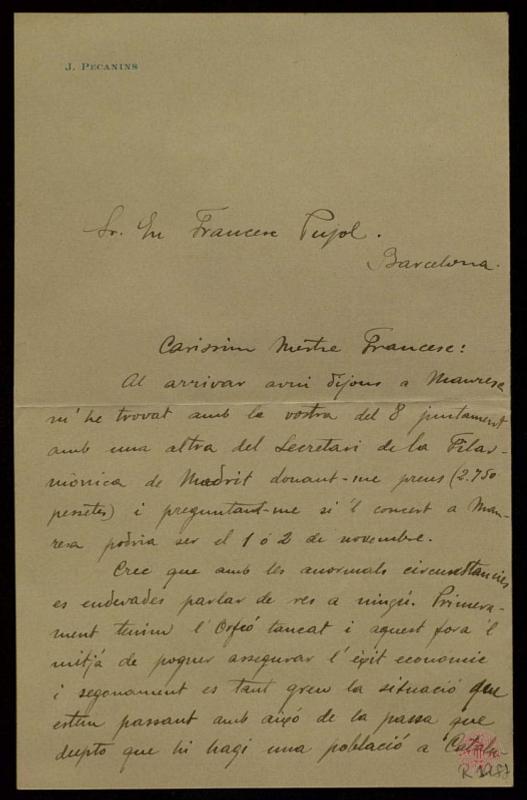 J. PECANINS
Sr. En Francesc Pujol.
Barcelona.
Caríssim Mestre Francesc:
Al arrivar avui dijous a Manresa
m'he trovat amb la vostra del 8 juntament
amb una altra del Secretari de la Filar-
mònica de Madrit donant-me preus (2.750
pessetes) i preguntant-me si 'l concert a Man-
resa podria ser el 1 ó 2 de novembre.
Crec que amb les anormals circunstancies
es endevades parlar de res a ningú. Primera-
ment tenim l'Orfeó tancat i aquest fora 'l
mitjá de poguer assegurar l'éxit economic
i segonament es tant greu la situació que
estem passant amb aixó de la passa que
dupto que hi hagi una població a Catalu-